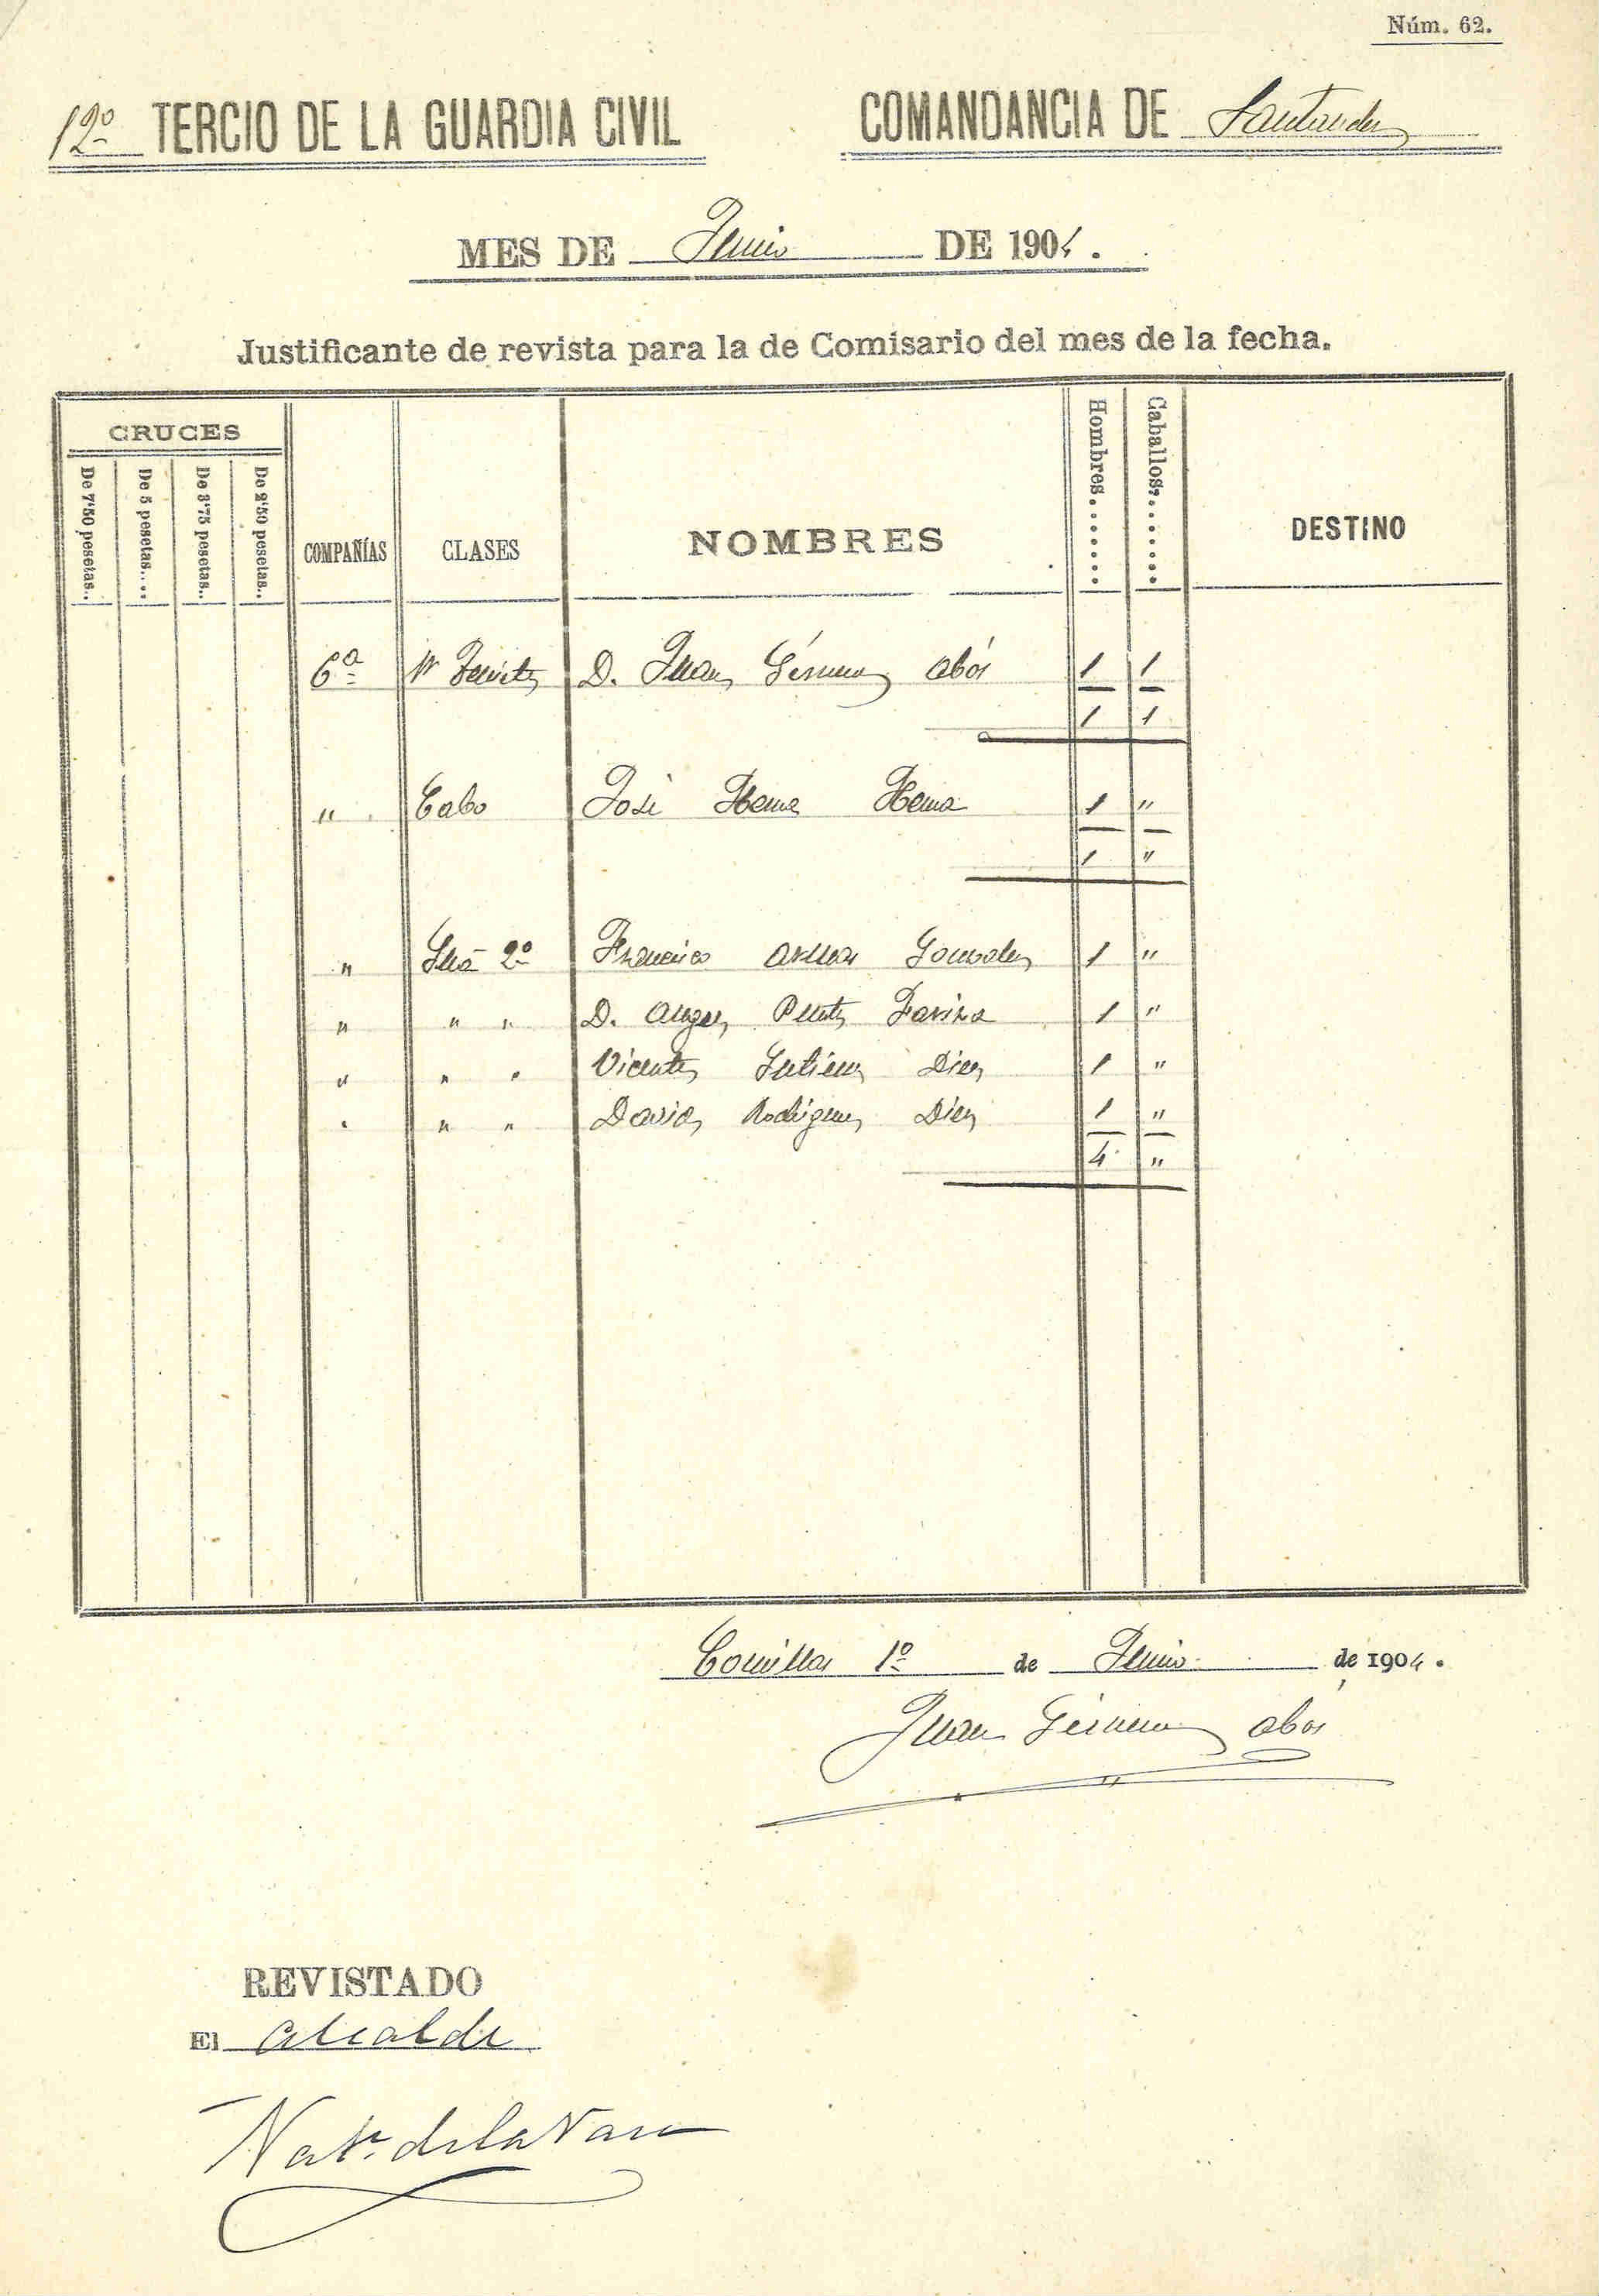 Núm. 62.
12º TERCIO DE LA GUARDIA CIVIL COMANDANCIA DE Santander
MES DE Junio DE 1904.
Justificante de revista para la de Comisario del mes de la fecha.
CRUCES
De 7'50 pesetas..
De 5 pesetas....
De 3'75 pesetas..
De 2'50 pesetas..
COMPAÑÍAS
CLASES
NOMBRES
Hombres.......
Caballos,.......
DESTINO
6ª D. Juan Género Abós 1 1
1 1
" Cabo José 1 "
1 "
" 2º Francisco Gonzalez 1 "
" " " D. Angel 1 "
" " " Vicente Gutierrez Diez 1 "
" " " David Rodriguez Diez 1 "
4 "
Comillas 1º de Junio de 1904.
Juan Género Abós
REVISTADO
El Alcalde